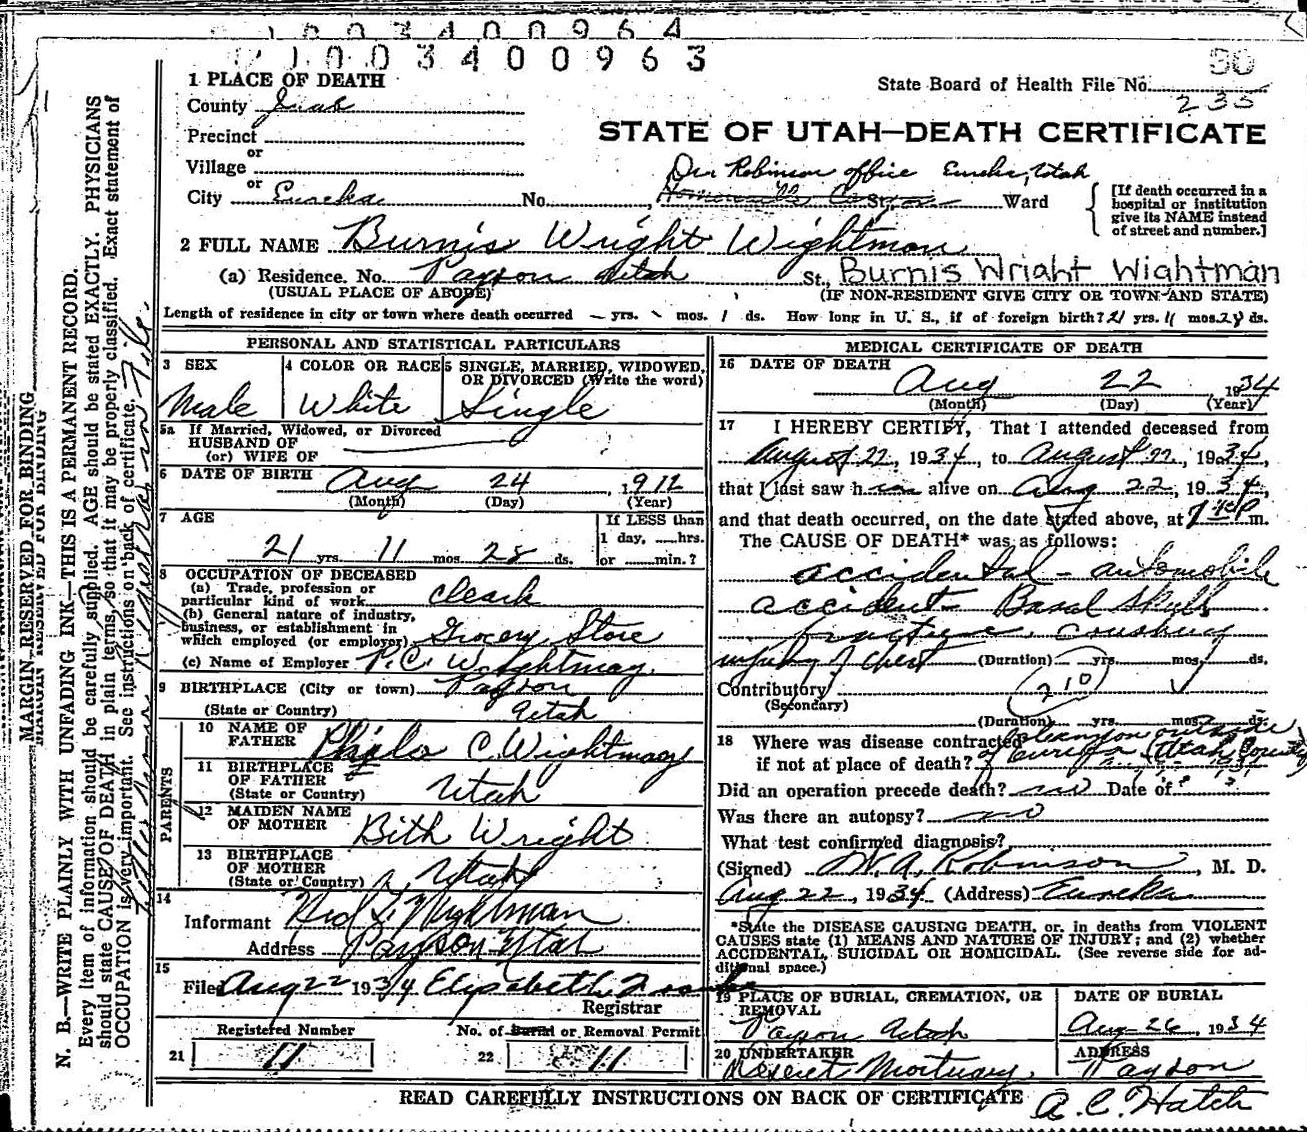 1 0 0 3 4 0 0 9 6 4
1 0 0 3 4 0 0 9 6 3
1 PLACE OF DEATH
State Board of Health File No.
235
County Juab
STATE OF UTAH—DEATH CERTIFICATE
Precinct
or
Village
or
Dr Robinson office Eureka, Utah
City Eureka No. St., Ward
[If death occurred in a hospital or institution give its NAME instead of street and number.]
2 FULL NAME Burnis Wright Wightman
(a) Residence. No. Payson Utah St., Burnis Wright Wightman
(USUAL PLACE OF ABODE) (IF NON-RESIDENT GIVE CITY OR TOWN AND STATE)
Length of residence in city or town where death occurred – yrs. mos. 1 ds. How long in U. S., if of foreign birth? 21 yrs. 11 mos. 28 ds.
PERSONAL AND STATISTICAL PARTICULARS
3 SEX 4 COLOR OR RACE 5 SINGLE, MARRIED, WIDOWED, OR DIVORCED (Write the word)
Male White Single
5a If Married, Widowed, or Divorced
HUSBAND OF
(or) WIFE OF
6 DATE OF BIRTH Aug 24, 1912
(Month) (Day) (Year)
7 AGE
21 yrs. 11 mos. 28 ds.
If LESS than
1 day, hrs.
or min.?
8 OCCUPATION OF DECEASED
(a) Trade, profession or
particular kind of work clerk
(b) General nature of industry,
business, or establishment in
which employed (or employer) Grocery Store
(c) Name of Employer P.C. Wightman
9 BIRTHPLACE (City or town) Payson
(State or Country) Utah
PARENTS
10 NAME OF
FATHER Philo C. Wightman
11 BIRTHPLACE
OF FATHER
(State or Country) Utah
12 MAIDEN NAME
OF MOTHER Bith Wright
13 BIRTHPLACE
OF MOTHER
(State or Country) Utah
14
Informant Wightman
Address Payson Utah
15
Filed Aug 22 1934 Elizabeth
Registrar
Registered Number No. of Burial or Removal Permit
21 11 22 11
MEDICAL CERTIFICATE OF DEATH
16 DATE OF DEATH
Aug 22 1934
(Month) (Day) (Year)
17 I HEREBY CERTIFY, That I attended deceased from
August 22, 1934, to August 22, 1934,
that I last saw him alive on Aug 22, 1934,
and that death occurred, on the date stated above, at m.
The CAUSE OF DEATH* was as follows:
accidental – automobile
accident – Basal Skull
fracture. crushing
injury of chest (Duration) yrs. mos. ds.
Contributory
(Secondary)
210
(Duration) yrs. mos. ds.
18 Where was disease contracted
if not at place of death? of Eureka (Utah County)
Did an operation precede death? no Date of
Was there an autopsy? no
What test confirmed diagnosis?
(Signed) W. A. Robinson, M. D.
Aug 22, 1934 (Address) Eureka
*State the DISEASE CAUSING DEATH, or, in deaths from VIOLENT
CAUSES state (1) MEANS AND NATURE OF INJURY; and (2) whether
ACCIDENTAL, SUICIDAL OR HOMICIDAL. (See reverse side for ad-
ditional space.)
19 PLACE OF BURIAL, CREMATION, OR REMOVAL DATE OF BURIAL
Payson Utah Aug 26, 1934
20 UNDERTAKER ADDRESS
Deseret Mortuary Payson
READ CAREFULLY INSTRUCTIONS ON BACK OF CERTIFICATE
A. C. Hatch
MARGIN RESERVED FOR BINDING
N. B.—WRITE PLAINLY WITH UNFADING INK—THIS IS A PERMANENT RECORD.
Every item of information should be carefully supplied. AGE should be stated EXACTLY. PHYSICIANS
should state CAUSE OF DEATH in plain terms, so that it may be properly classified. Exact statement of
OCCUPATION is very important. See instructions on back of certificate.